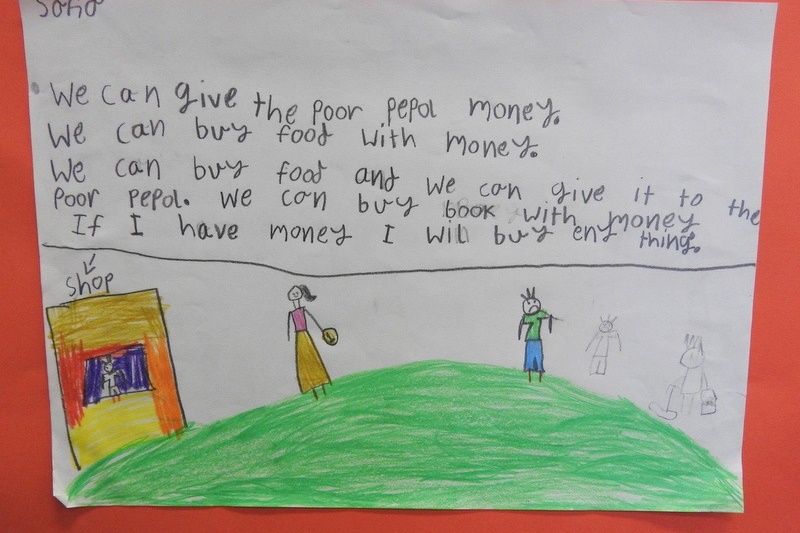 We can give the poor pepol money.
We can buy food with money.
We can buy food and we can give it to the
Poor pepol. We can buy book with money
If I have money I will buy eny thing.
Shop